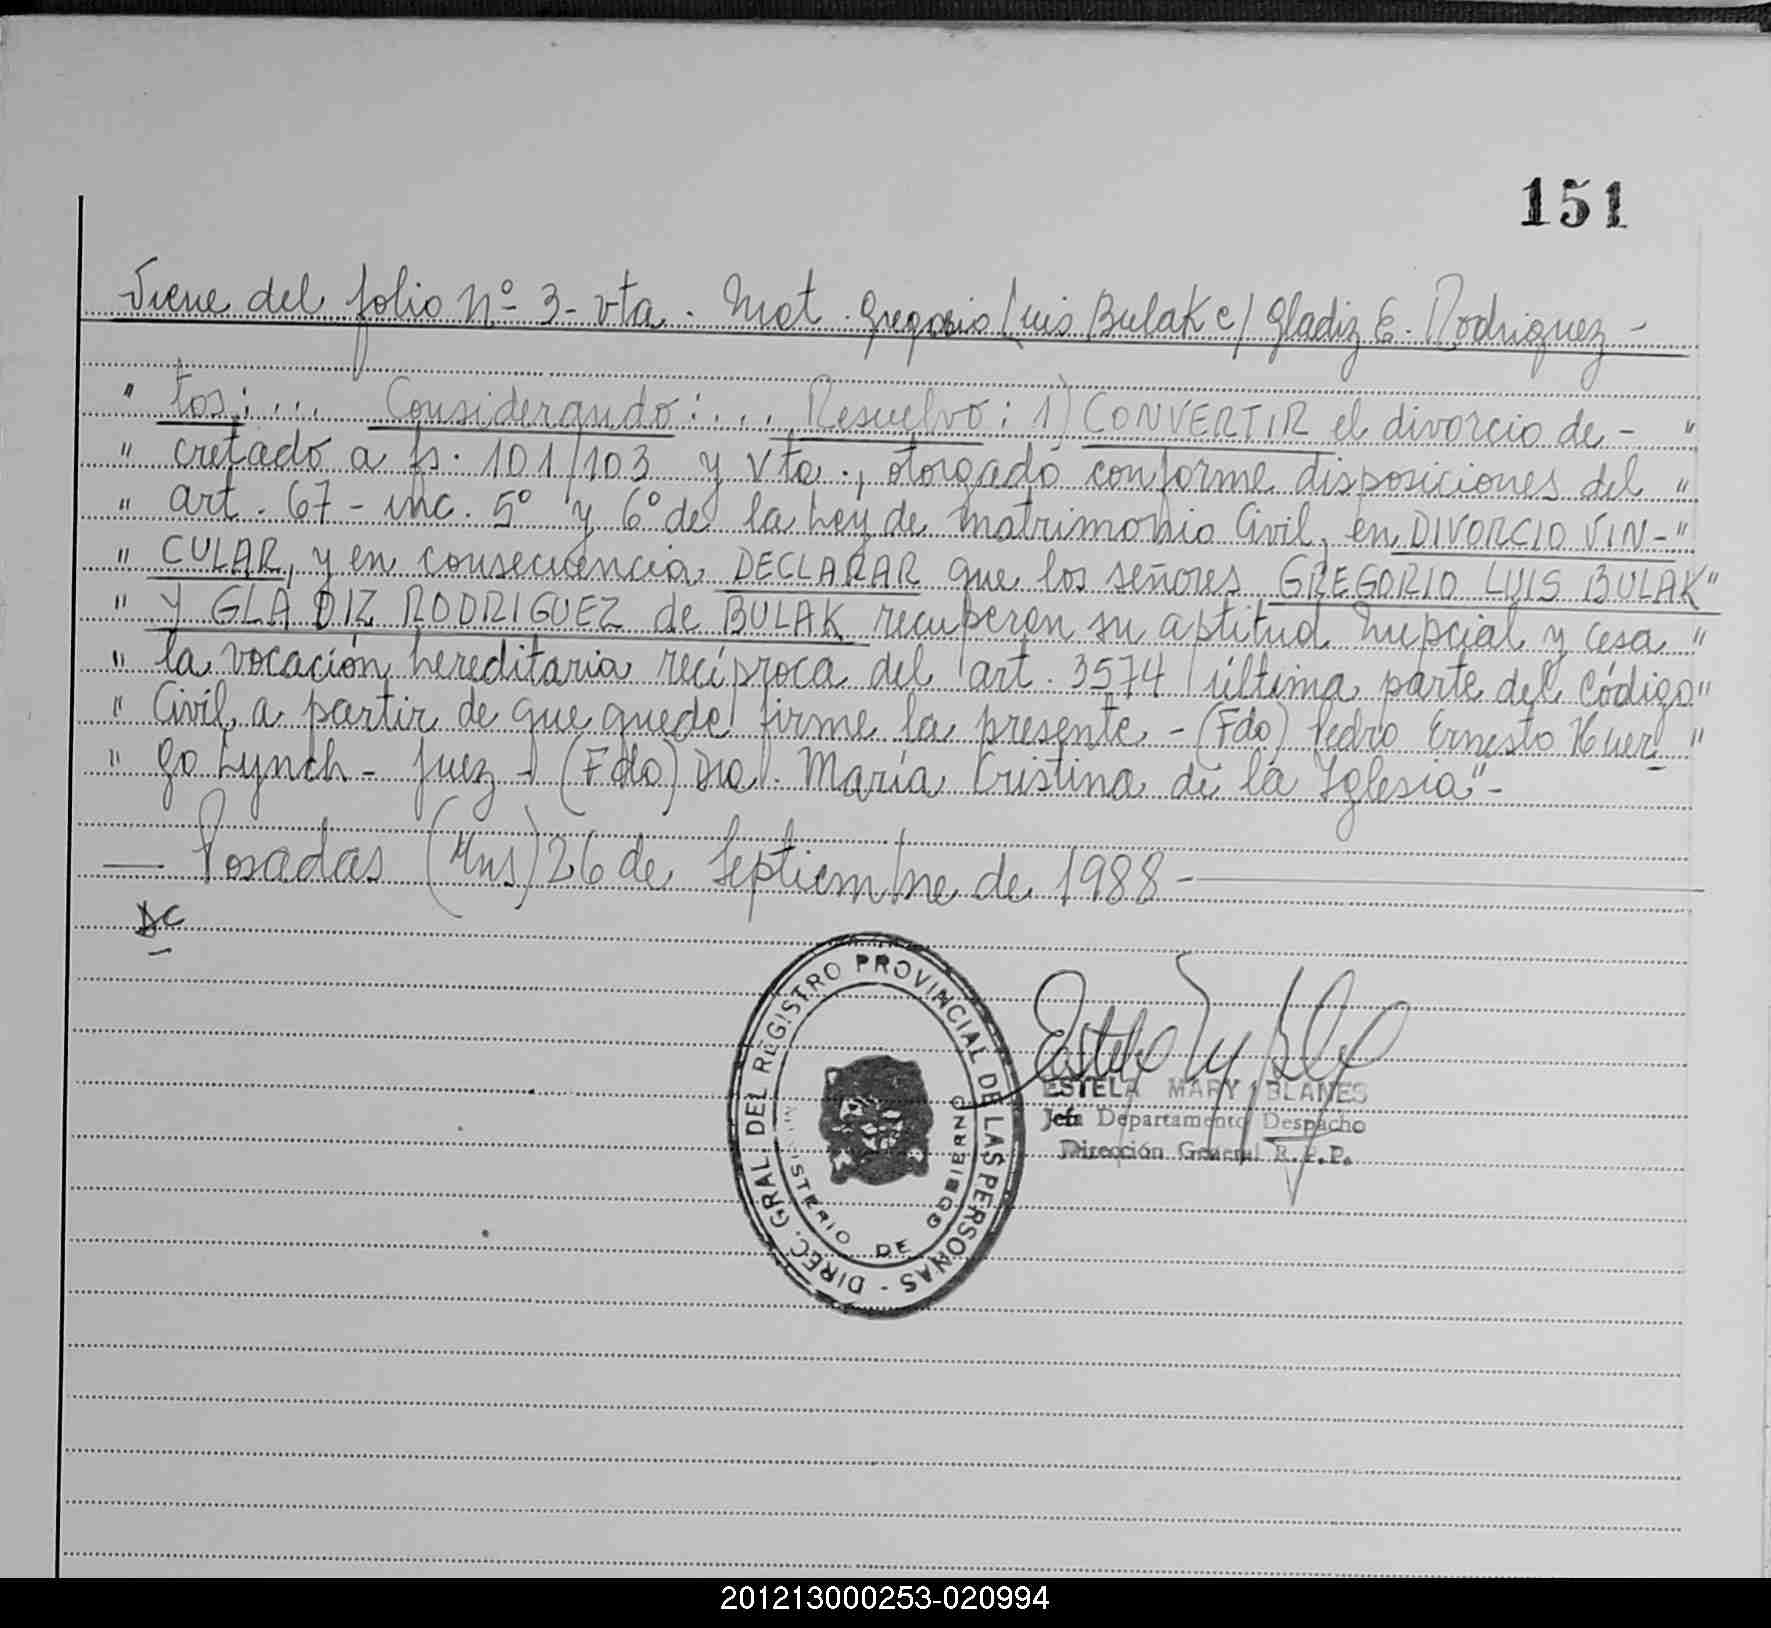 151
Viene del folio Nº 3-vta. Mat. Gregorio Luis Bulak c/ Gladiz E. Rodriguez -
" tos:... Considerando:... Resuelvo: 1) CONVERTIR el divorcio de- "
" cretado a fs. 101/103 y vta., otorgado conforme disposiciones del "
" art. 67 - inc. 5º y 6º de la Ley de matrimonio Civil, en DIVORCIO VIN- "
" CULAR, y en consecuencia DECLARAR que los señores GREGORIO LUIS BULAK "
" Y GLADIZ RODRIGUEZ de BULAK recuperan su aptitud nupcial y cesa "
" la vocación hereditaria recíproca del art. 3574 última parte del Código "
" Civil, a partir de que quede firme la presente.- (Fdo) Pedro Ernesto Huer- "
" go Lynch - Juez - (Fdo) Dra. María Cristina de la Iglesia" -
— Posadas (Mns) 26 de Septiembre de 1988 -
DIREC. GRAL. DEL REGISTRO PROVINCIAL DE LAS PERSONAS -
MINISTERIO DE GOBIERNO
ESTELA MARY BLANES
Jefa Departamento Despacho
Dirección General R.P.P.
201213000253-020994